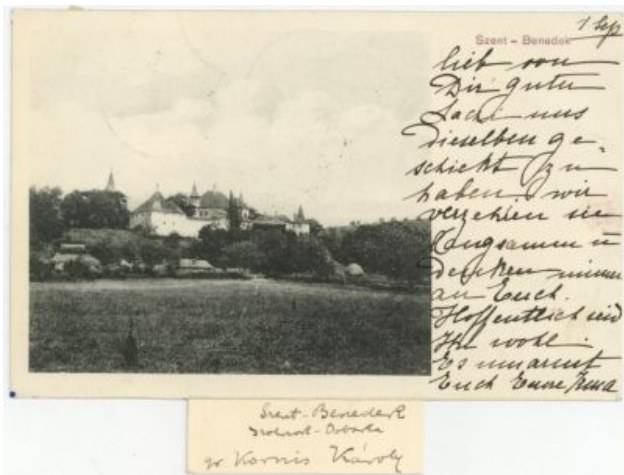 1 Sep
Szent – Benedek
lieb von
Dir guten
uns
dieselben ge-
schickt zu
haben wir
verzehren sie
langsamm u
denken immer
an Euch.
Hoffentlich seid
Ihr wohl.
Es umarmt
Euch Eure
Szent-Benedek
Szolnok-Doboka
gr Kornis Károly